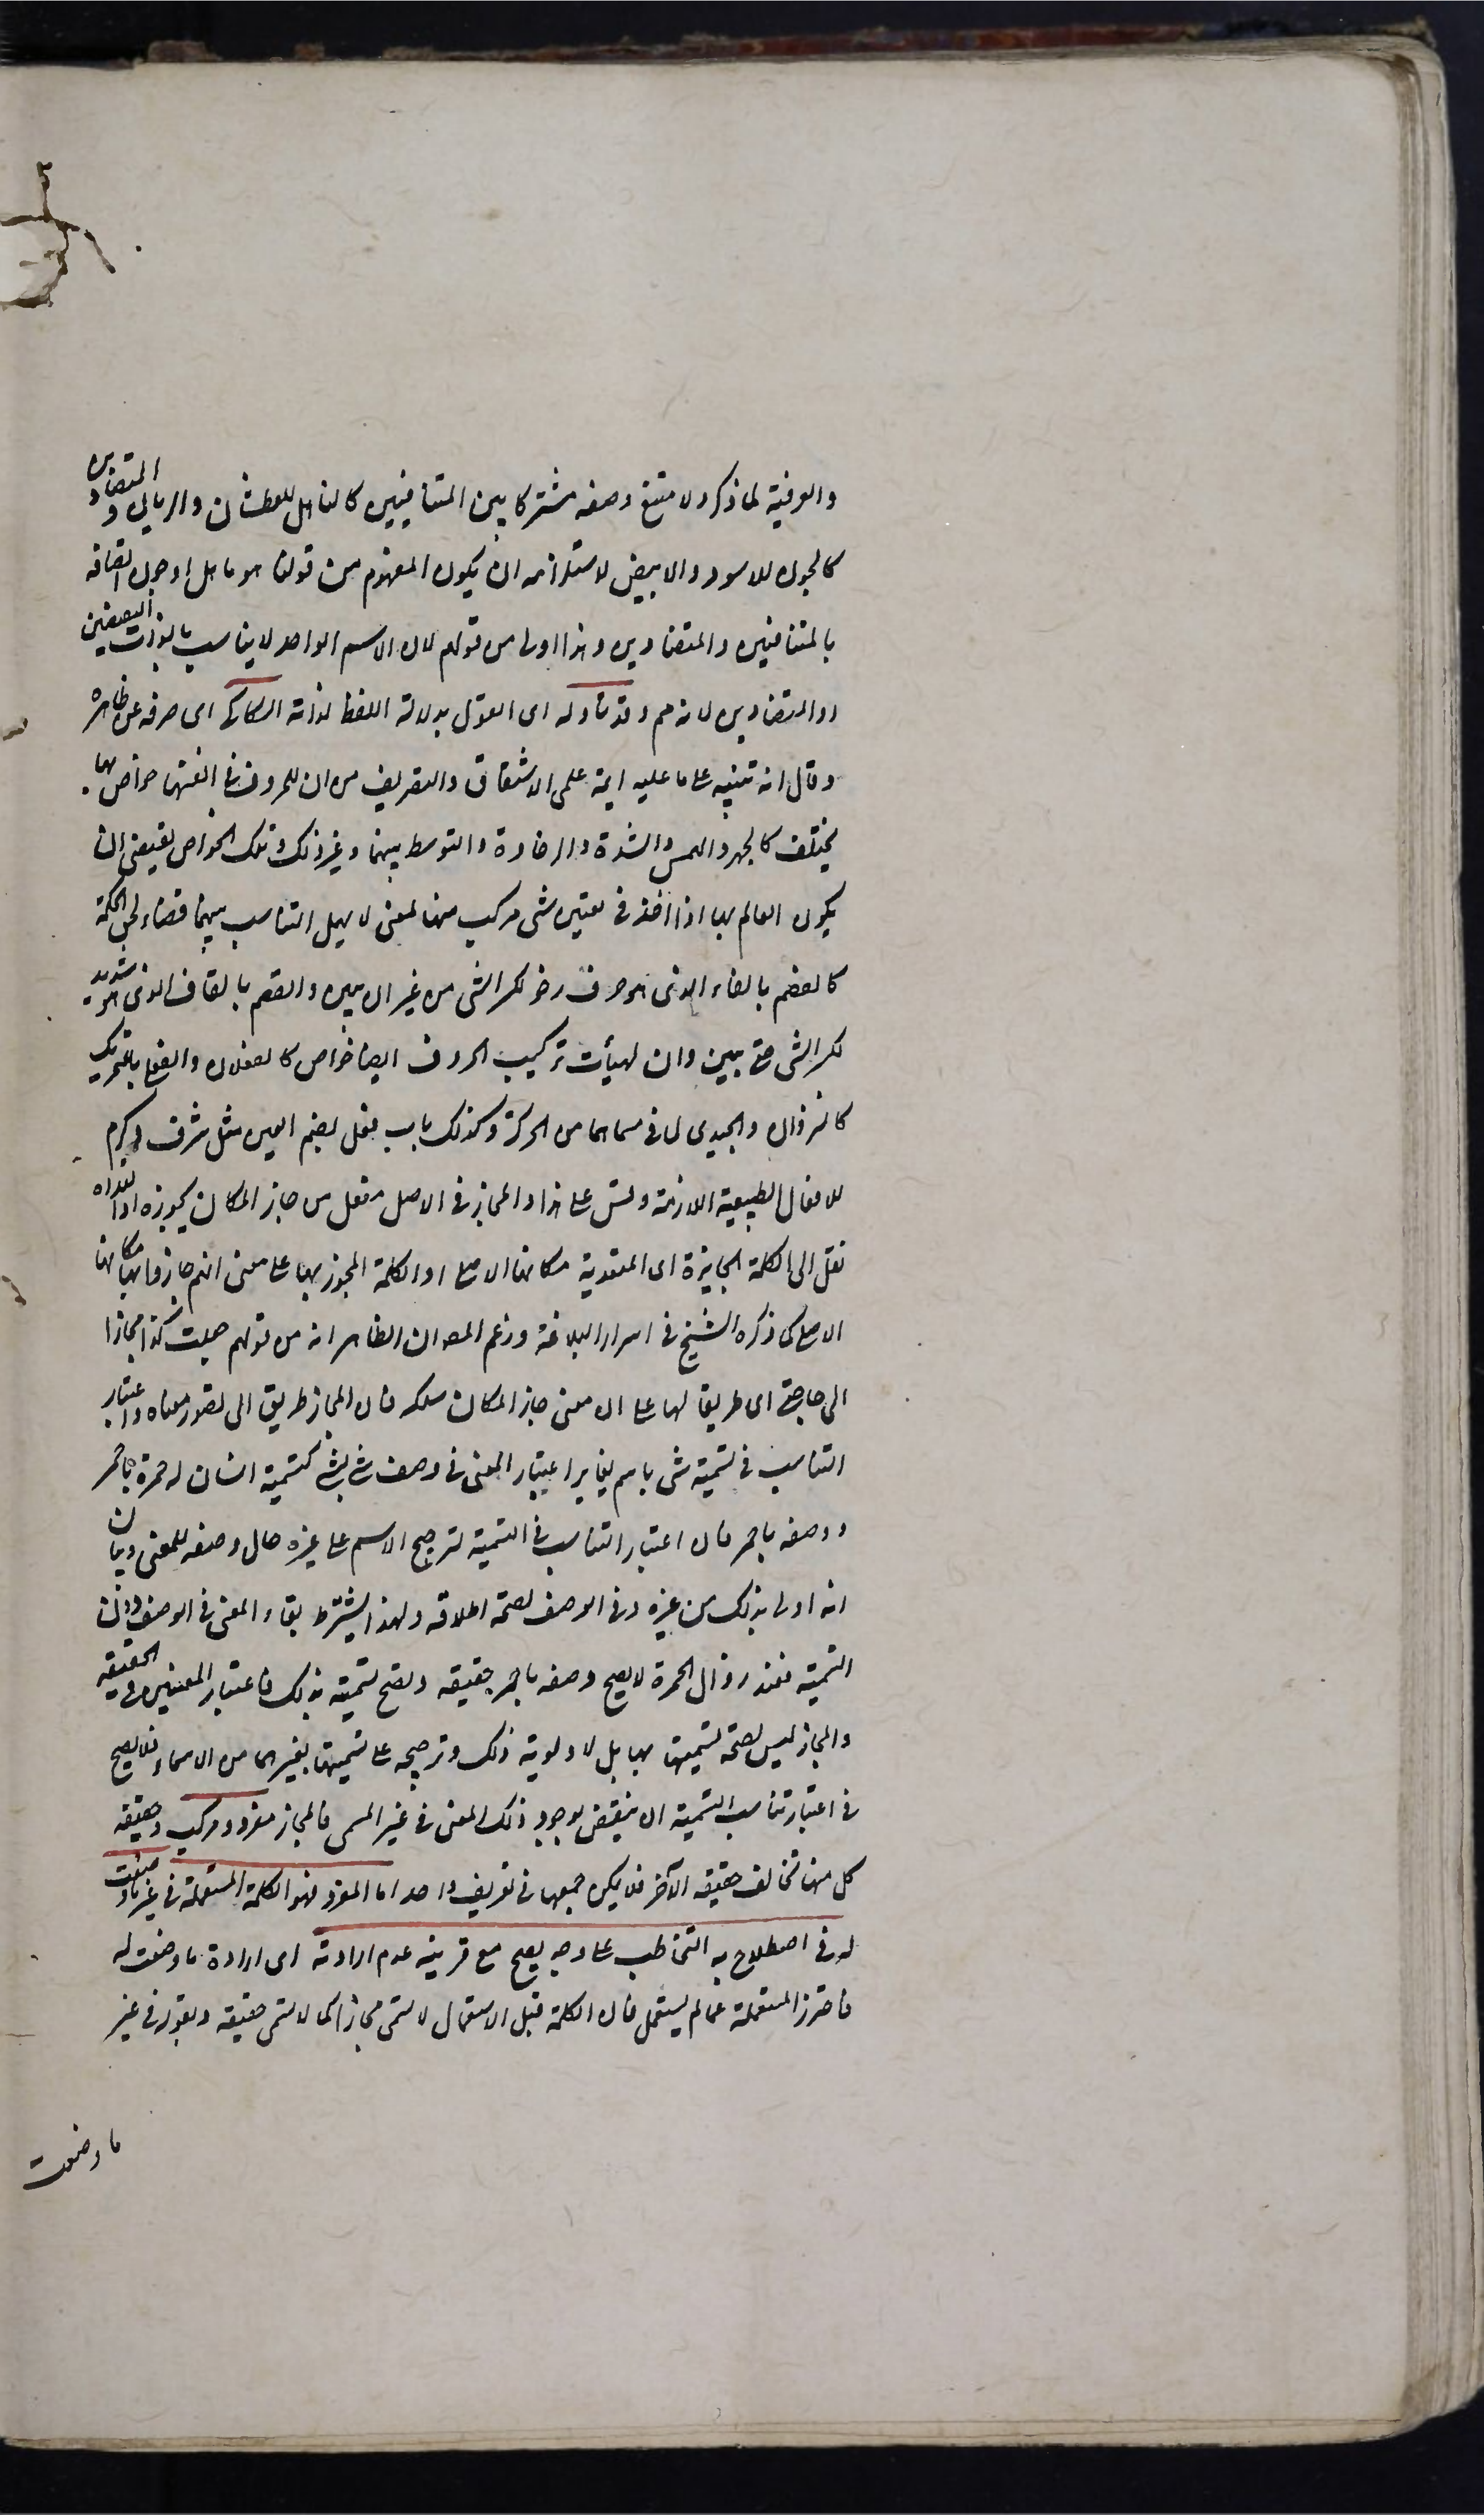 والعرفية لما ذكر ولامتنع وضعه مشتركا بين المتنافيين كالناهل للعطشان والريان والمتضادين
كالجون للاسود والابيض لاستلزامه ان يكون المفهوم من قولنا هو ناهل او جون اتصافه
بالمتنافيين والمتضادين وهذا اولى من قولهم لان الاسم الواحد لا يناسب بالذات النقيضين
او المتضادين لانه مم وقد تأوله اى القول بدلالة اللفظ لذاته السكاكى اى صرفه عن ظاهره
وقال انه تنبيه على ما عليه ايمة علمى الاشتقاق والتصريف من ان للحروف فى انفسها خواص بها
يختلف كالجهر والهمس والشدة والرخاوة والتوسط بينهما وغير ذلك وتلك الخواص يقتضى ان
يكون العالم بها اذا اخذ فى تعيين شئ مركب منها لمعنى لا يهمل التناسب بينهما قضاء لحق الحكمة
كالفصم بالفاء الذى هو حرف رخو لكسر الشئ من غير ان يبين والقصم بالقاف الذى هو شديد
لكسر الشئ حتى يبين وان لهيأت تركيب الحروف ايضا خواص كالفعلان والفعلى بالتحريك
كالنزوان والحيدى لما فى مسماهما من الحركة وكذلك باب فعل بضم العين مثل شرف وكرم
للافعال الطبيعية اللازمة وقس على هذا والمجاز فى الاصل مفعل من جاز المكان يجوزه اذا تعداه
نقل الى الكلمة الجايزة اى المتعدية مكانها الاصلى او الكلمة المجوز بها على معنى انهم جازوا بها مكانها
الاصلى كما ذكره الشيخ فى اسرار البلاغة وزعم المص ان الظاهر انه من قولهم جعلت كذا مجازا
الى حاجتى اى طريقا لها على ان معنى جاز المكان سلكه فان المجاز طريق الى تصور معناه واعتبار
التناسب فى تسمية شئ باسم يغاير اعتبار المعنى فى وصف شئ بشئ كتسمية انسان له حمرة باحمر
ووصفه باحمر فان اعتبار التناسب فى التسمية لترجيح الاسم على غيره حال وضعه للمعنى وبيان
انه اولى بذلك من غيره وفى الوصف لصحة اطلاقه ولهذا يشترط بقاء المعنى فى الوصف دون
التسمية فعند زوال الحمرة لا يصح وصفه باحمر حقيقة ويصح تسميته بذلك فاعتبار المعنيين فى الحقيقة
والمجاز ليس لصحة تسميتهما بهما بل لاولوية ذلك وترجيحه على تسميتهما بغيرهما من الاسماء فلا يصح
فى اعتبار تناسب التسمية ان ينقض بوجود ذلك المعنى فى غير المسمى فالمجاز مفرد ومركب وحقيقة
كل منهما تخالف حقيقة الآخر فلا يمكن جمعهما فى تعريف واحد اما المفرد فهو الكلمة المستعملة فى غير ما وضعت
له فى اصطلاح به التخاطب على وجه يصح مع قرينة عدم ارادته اى ارادة ما وضعت له
فاحترز المستعملة عما لم يستعمل فان الكلمة قبل الاستعمال لا تسمى مجازا كما لا تسمى حقيقة وبقوله فى غير
ما وضعت